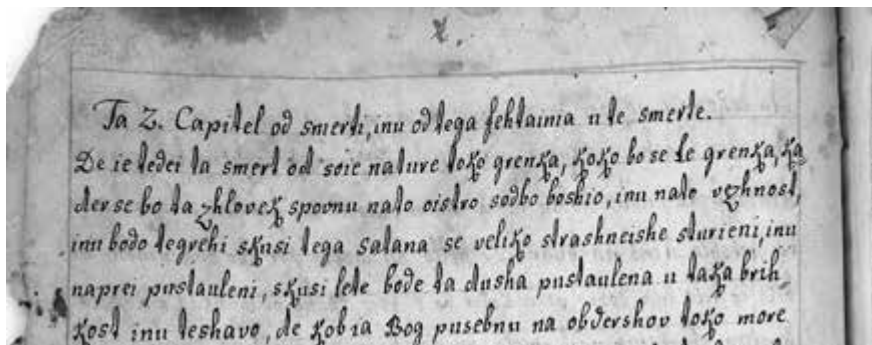 Ta 2. Capitel od smerti, inu od tega fehtainia u te smerte.
De ie tedei ta smert od soie nature toko grenka, koko bo se le grenka, ka
der se bo ta zhlovek spovnu nato oistro sodbo boshio, inu nato vezhnost,
inu bodo tegrehi skusi tega satana se veliko strashneishe sturieni, inu
naprei pustauleni, skusi lete bode ta dusha pustaulena u taka brih
kost inu teshavo, de kobia Bog pusebnu na obdershov toko more